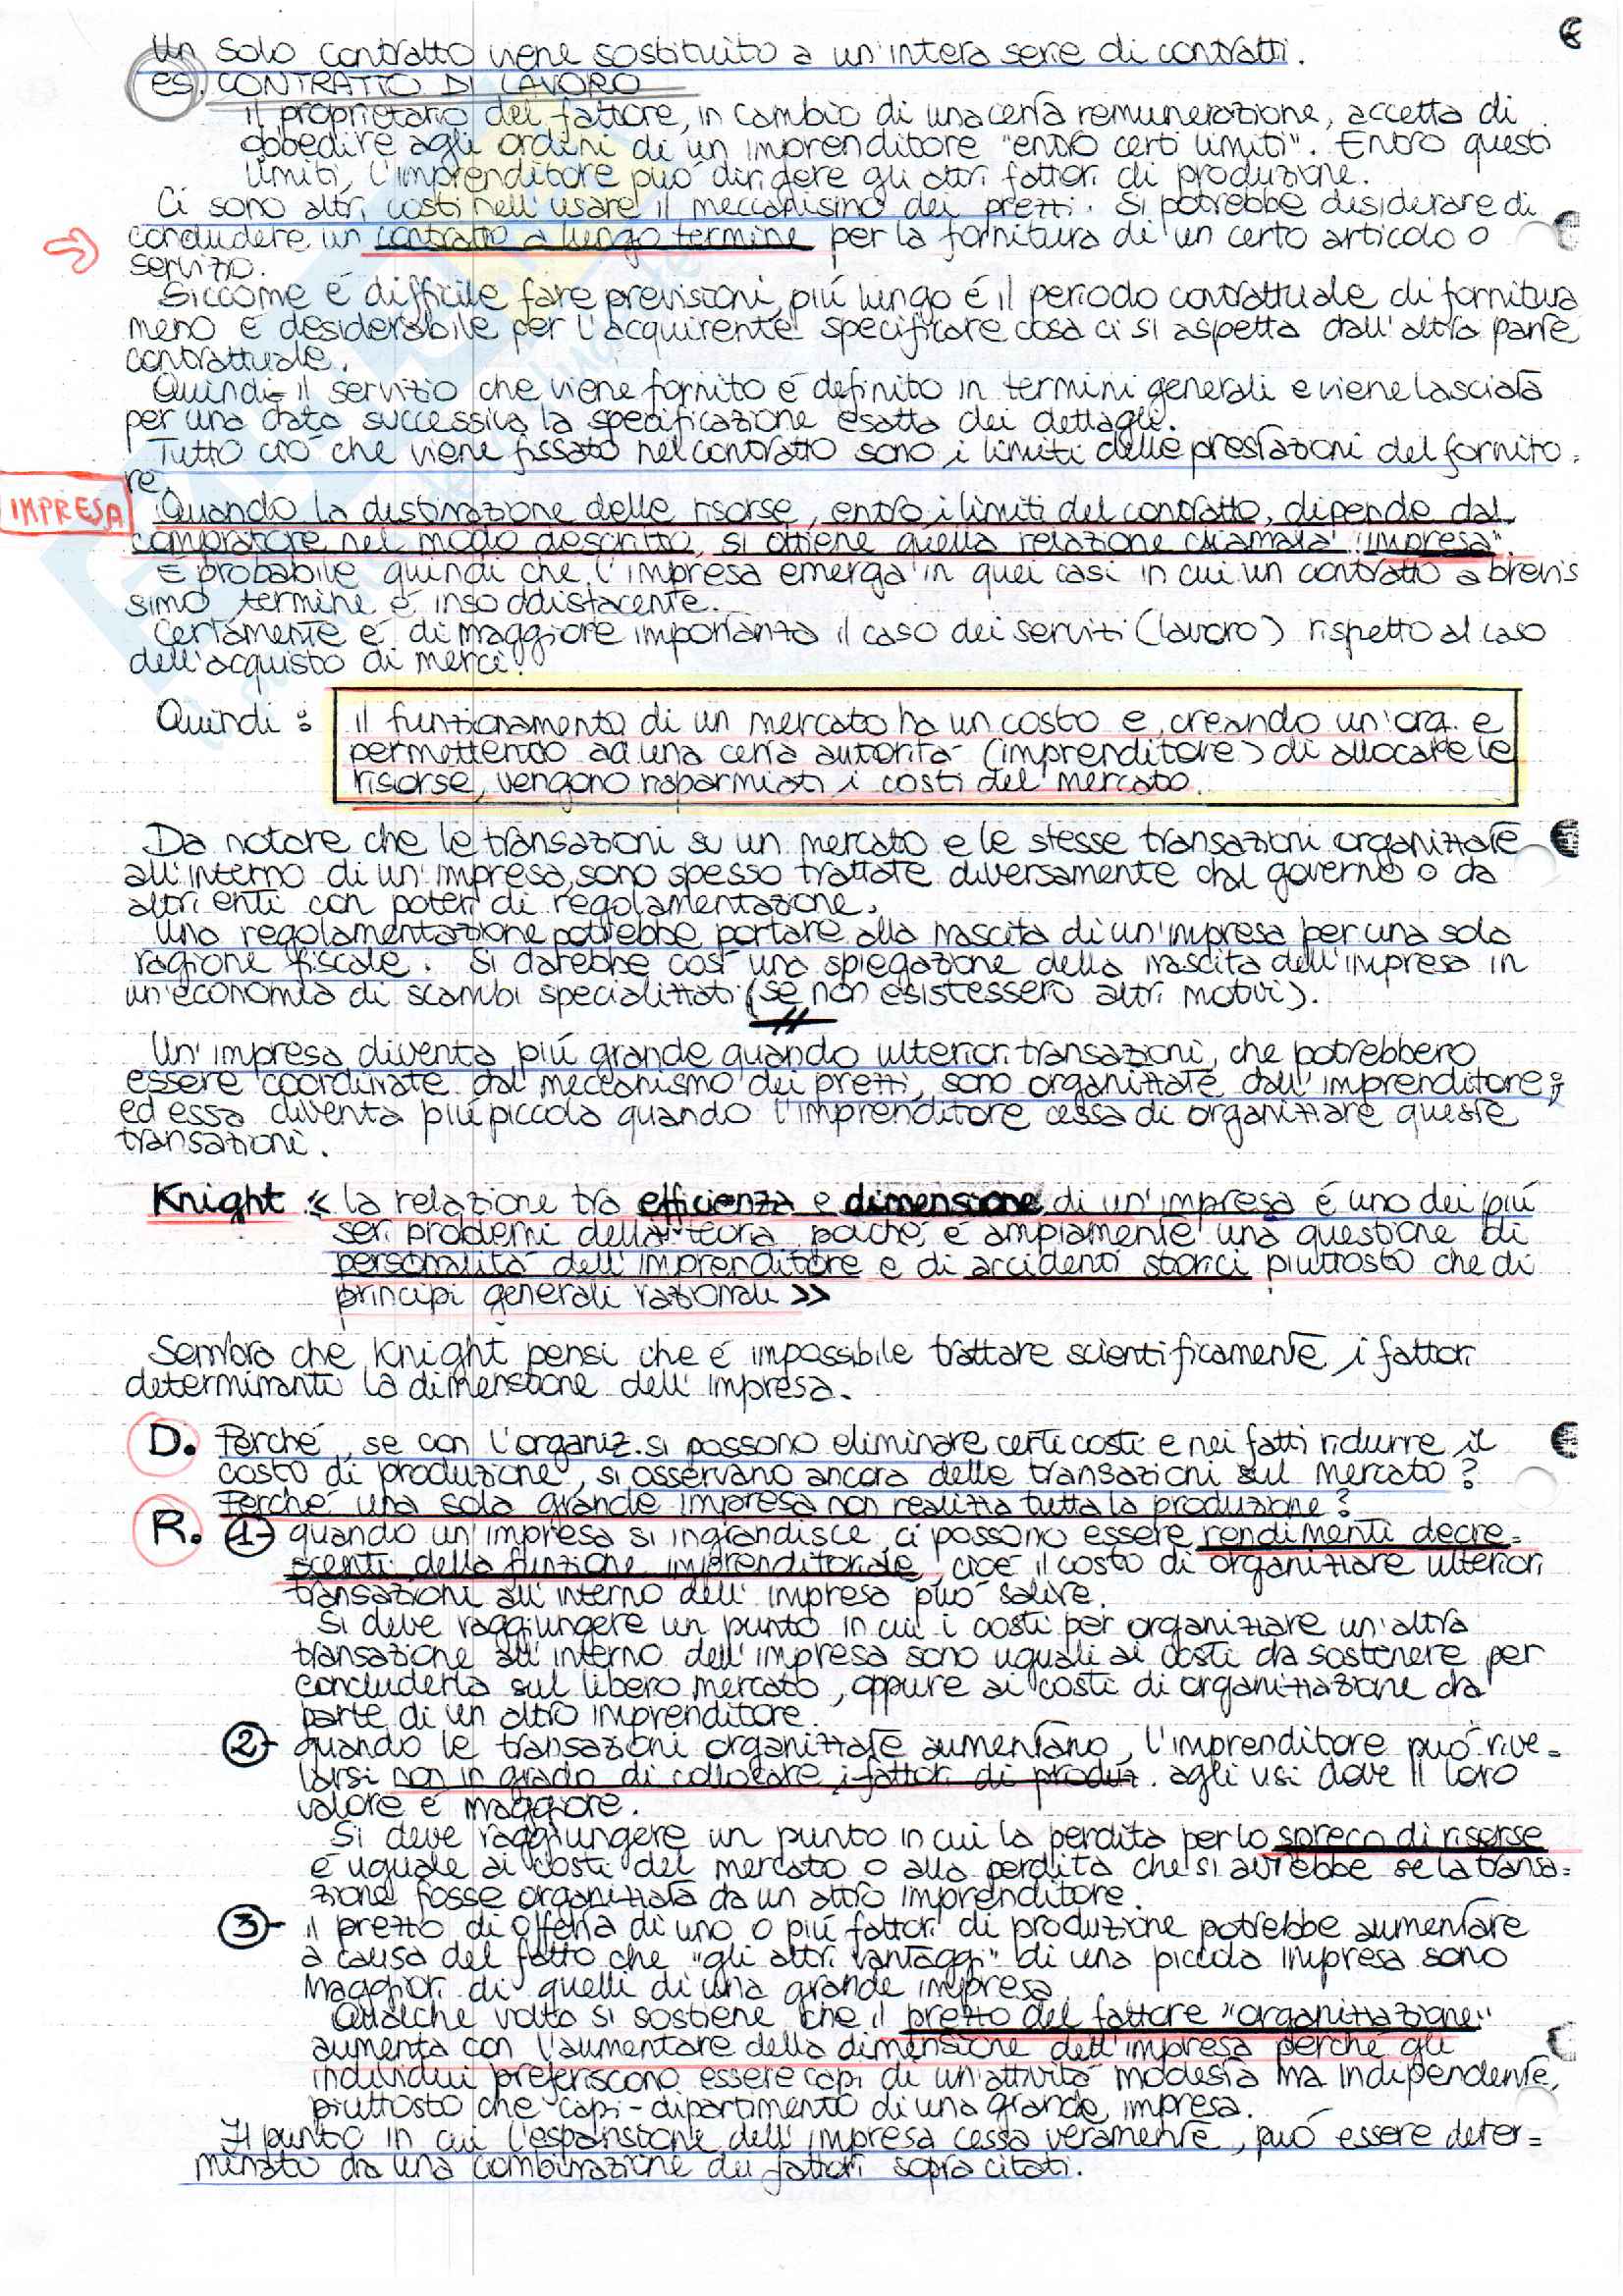 Un solo contratto viene sostituito a un'intera serie di contratti.
es. CONTRATTO DI LAVORO
Il proprietario del fattore, in cambio di una certa remunerazione, accetta di
obbedire agli ordini di un imprenditore "entro certi limiti". Entro questi
limiti, l'imprenditore può dirigere gli altri fattori di produzione.
Ci sono altri costi nell'usare il meccanismo dei prezzi. Si potrebbe desiderare di
concludere un contratto a lungo termine per la fornitura di un certo articolo o
servizio.
Siccome é difficile fare previsioni, piú lungo é il periodo contrattuale di fornitura
meno é desiderabile per l'acquirente specificare cosa ci si aspetta dall'altra parte
contrattuale.
Quindi il servizio che viene fornito é definito in termini generali e viene lasciata
per una data successiva la specificazione esatta dei dettagli.
Tutto ciò che viene fissato nel contratto sono i limiti delle prestazioni del fornito =
re.
IMPRESA
Quando la destinazione delle risorse, entro i limiti del contratto, dipende dal
compratore nel modo descritto, si ottiene quella relazione chiamata "impresa".
É probabile quindi che l'impresa emerga in quei casi in cui un contratto a brevis
simo termine é insoddisfacente.
Certamente é di maggiore importanza il caso dei servizi (lavoro) rispetto al caso
dell'acquisto di merci.
Quindi : il funzionamento di un mercato ha un costo e, creando un'org. e
permettendo ad una certa autorità (imprenditore) di allocare le
risorse, vengono risparmiati i costi del mercato.
Da notare che le transazioni su un mercato e le stesse transazioni organizzate
all'interno di un'impresa, sono spesso trattate diversamente dal governo o da
altri enti con poteri di regolamentazione.
Una regolamentazione potrebbe portare alla nascita di un'impresa per una sola
ragione fiscale. Si darebbe così una spiegazione della nascita dell'impresa in
un'economia di scambi specializzati (se non esistessero altri motivi).
Un'impresa diventa piú grande quando ulteriori transazioni, che potrebbero
essere coordinate dal meccanismo dei prezzi, sono organizzate dall'imprenditore;
ed essa diventa piú piccola quando l'imprenditore cessa di organizzare queste
transazioni.
Knight : « la relazione tra efficienza e dimensione di un'impresa é uno dei piú
seri problemi della teoria poiché, é ampiamente una questione di
personalità dell'imprenditore e di accidenti storici piuttosto che di
principi generali razionali »
Sembra che Knight pensi che é impossibile trattare scientificamente i fattori
determinanti la dimensione dell'impresa.
D. Perché, se con l'organiz. si possono eliminare certi costi e nei fatti ridurre il
costo di produzione, si osservano ancora delle transazioni sul mercato?
Perché una sola grande impresa non realizza tutta la produzione?
R. 1- quando un'impresa si ingrandisce, ci possono essere rendimenti decre=
scenti della funzione imprenditoriale, cioé il costo di organizzare ulteriori
transazioni all'interno dell'impresa può salire.
Si deve raggiungere un punto in cui i costi per organizzare un'altra
transazione all'interno dell'impresa sono uguali ai costi da sostenere per
concluderla sul libero mercato, oppure ai costi di organizzazione da
parte di un altro imprenditore.
2- quando le transazioni organizzate aumentano, l'imprenditore può rive=
larsi non in grado di collocare i fattori di produz. agli usi dove il loro
valore é maggiore.
Si deve raggiungere un punto in cui la perdita per lo spreco di risorse
é uguale ai costi del mercato o alla perdita che si avrebbe se la transa=
zione fosse organizzata da un altro imprenditore.
3- il prezzo di offerta di uno o piú fattori di produzione potrebbe aumentare
a causa del fatto che "gli altri vantaggi" di una piccola impresa sono
maggiori di quelli di una grande impresa
Qualche volta si sostiene che il prezzo del fattore "organizzazione"
aumenta con l'aumentare della dimensione dell'impresa perché gli
individui preferiscono essere capi di un'attività modesta ma indipendente,
piuttosto che capi-dipartimento di una grande impresa.
Il punto in cui l'espansione dell'impresa cessa veramente, può essere deter=
minato da una combinazione dei fattori sopra citati.